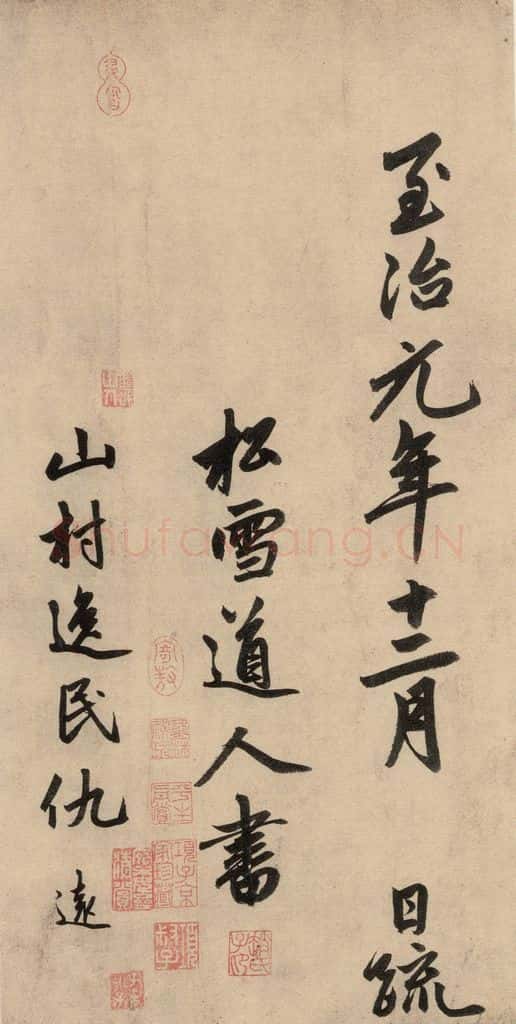 至治元年十二月 日疏
松雪道人書
山村逸民仇遠
shufawang.CN